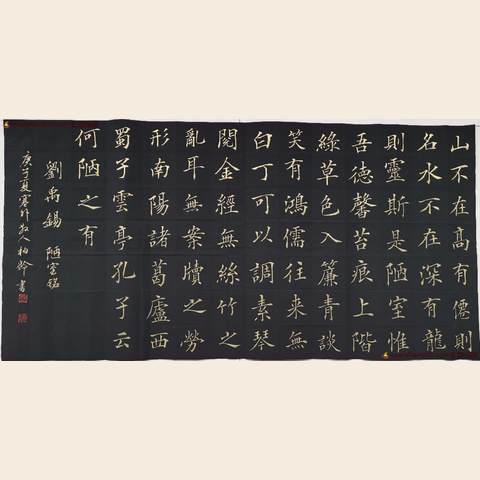 山不在高有僊則
名水不在深有龍
則靈斯是陋室惟
吾徳馨苔痕上階
綠草色入簾青談
笑有鴻儒往来無
白丁可以調素琴
閱金經無絲竹之
亂耳無案牘之勞
形南陽諸葛廬西
蜀子雲亭孔子云
何陋之有
劉禹錫 陋室銘
庚子夏塞外牧人柏書